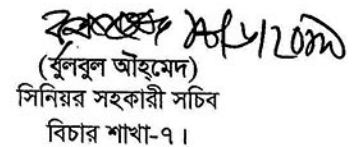 (বুলবুল আহ্‌মেদ)
সিনিয়র সহকারী সচিব
বিচার শাখা-৭।